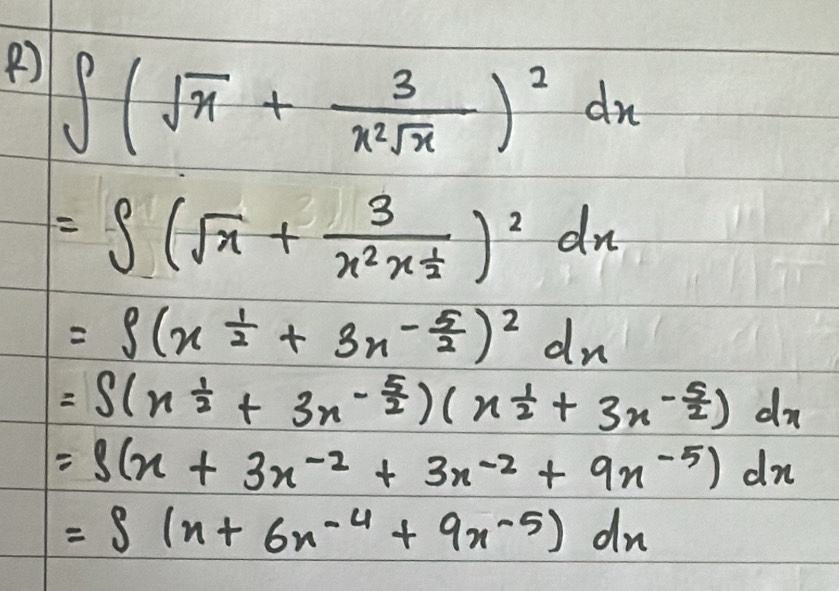 f) ∫ ( √x + 3/(x²√x) )² dx
= ∫ ( √x + 3/(x² x^(1/2)) )² dx
= ∫ (x^(1/2) + 3x^(-5/2))² dx
= ∫ (x^(1/2) + 3x^(-5/2)) (x^(1/2) + 3x^(-5/2)) dx
= ∫ (x + 3x⁻² + 3x⁻² + 9x⁻⁵) dx
= ∫ (x + 6x⁻⁴ + 9x⁻⁵) dx